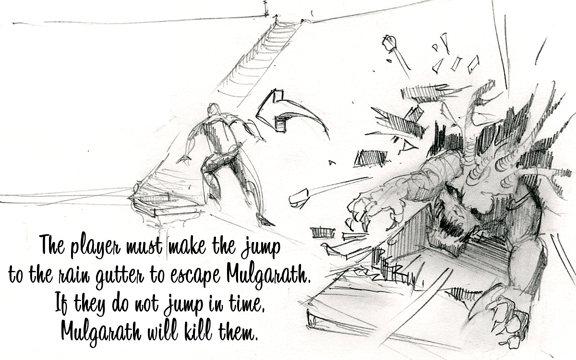 The player must make the jump
to the rain gutter to escape Mulgarath.
If they do not jump in time,
Mulgarath will kill them.